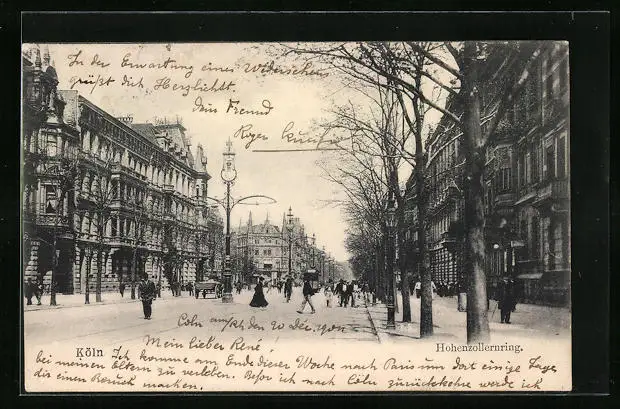 In der Erwartung eines Wiedersehen
grüßt dich Herzlichst.
dein Freund
Roger
Cöln a/Rh den 20 Dec. 1905
Mein lieber René!
Köln Ich komme am Ende dieser Woche nach Paris um dort einige Tage
bei meinen Eltern zu verleben. Bevor ich nach Cöln zurückkehre werde ich
dir einen Besuch machen.
Hohenzollernring.